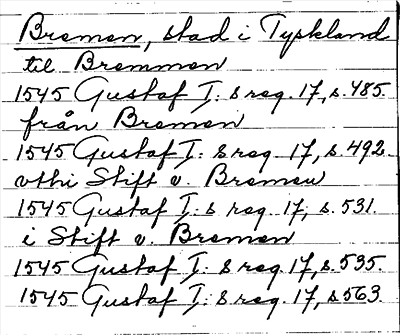 Bremen, stad i Tyskland
til Bremmen
1545 Gustaf I:s reg. 17, s. 485.
från Bremen
1545 Gustaf I:s reg. 17, s. 492.
vthi Stift v. Bremen
1545 Gustaf I:s reg. 17, s. 531.
i Stift v. Bremen
1545 Gustaf I:s reg. 17, s. 535.
1545 Gustaf I:s reg. 17, s. 563.